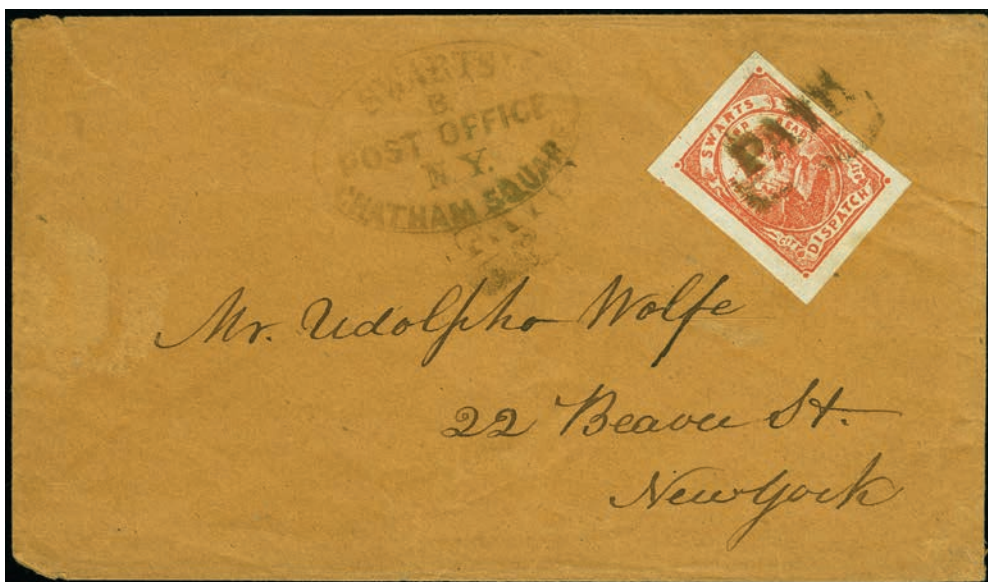 SWARTS'
B
POST OFFICE
N.Y.
CHATHAM SQUARE
SWARTS
READY
PAID
CITY
DISPATCH
Mr. Udolpho Wolfe
22 Beaver St.
New York